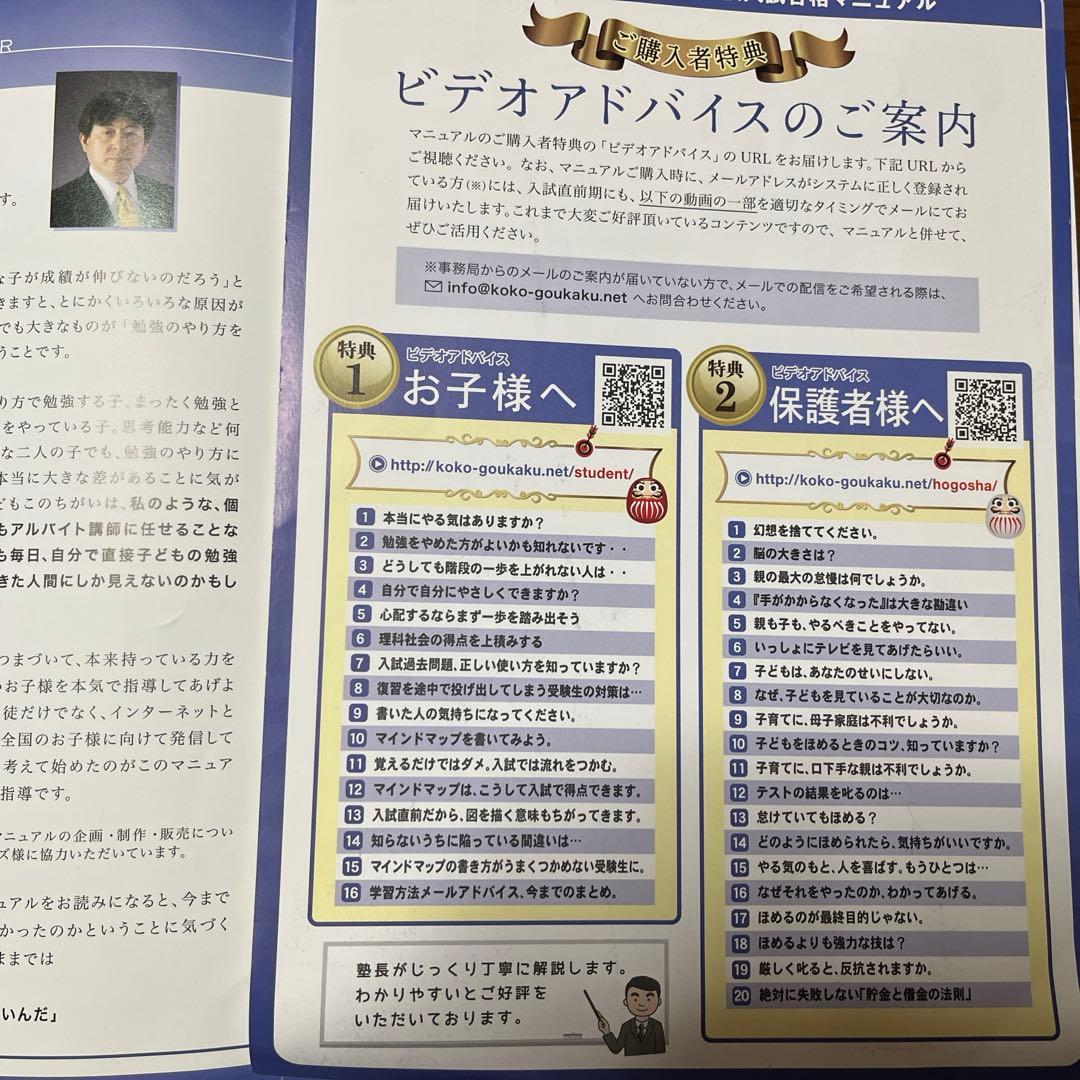 R
す。
な子が成績が伸びないのだろう」と
きますと、とにかくいろいろな原因が
でも大きなものが「勉強のやり方を
うことです。
り方で勉強する子、まったく勉強と
をやっている子。思考能力など何
な二人の子でも、勉強のやり方に
本当に大きな差があることに気が
どもこのちがいは、私のような、個
もアルバイト講師に任せることな
も毎日、自分で直接子どもの勉強
きた人間にしか見えないのかもし
つまづいて、本来持っている力を
いお子様を本気で指導してあげよ
徒だけでなく、インターネットと
全国のお子様に向けて発信して
考えて始めたのがこのマニュア
指導です。
マニュアルの企画・制作・販売につい
ズ様に協力いただいています。
ュアルをお読みになると、今まで
かったのかということに気づく
ままでは
いんだ」
入試合格マニュアル
ご購入者特典
ビデオアドバイスのご案内
マニュアルのご購入者特典の「ビデオアドバイス」のURLをお届けします。下記URLから
ご視聴ください。なお、マニュアルご購入時に、メールアドレスがシステムに正しく登録され
ている方(※)には、入試直前期にも、以下の動画の一部を適切なタイミングでメールにてお
届けいたします。これまで大変ご好評頂いているコンテンツですので、マニュアルと併せて、
ぜひご活用ください。
※事務局からのメールのご案内が届いていない方で、メールでの配信をご希望される際は、
info@koko-goukaku.net へお問合わせください。
特典
1
ビデオアドバイス
お子様へ
http://koko-goukaku.net/student/
1 本当にやる気はありますか?
2 勉強をやめた方がよいかも知れないです・・
3 どうしても階段の一歩を上がれない人は・・
4 自分で自分にやさしくできますか?
5 心配するならまず一歩を踏み出そう
6 理科社会の得点を上積みする
7 入試過去問題、正しい使い方を知っていますか?
8 復習を途中で投げ出してしまう受験生の対策は…
9 書いた人の気持ちになってください。
10 マインドマップを書いてみよう。
11 覚えるだけではダメ。入試では流れをつかむ。
12 マインドマップは、こうして入試で得点できます。
13 入試直前だから、図を描く意味もちがってきます。
14 知らないうちに陥っている間違いは…
15 マインドマップの書き方がうまくつかめない受験生に。
16 学習方法メールアドバイス、今までのまとめ。
塾長がじっくり丁寧に解説します。
わかりやすいとご好評を
いただいております。
特典
2
ビデオアドバイス
保護者様へ
http://koko-goukaku.net/hogosha/
1 幻想を捨ててください。
2 脳の大きさは?
3 親の最大の怠慢は何でしょうか。
4 『手がかからなくなった』は大きな勘違い
5 親も子も、やるべきことをやってない。
6 いっしょにテレビを見てあげたらいい。
7 子どもは、あなたのせいにしない。
8 なぜ、子どもを見ていることが大切なのか。
9 子育てに、母子家庭は不利でしょうか。
10 子どもをほめるときのコツ、知っていますか?
11 子育てに、口下手な親は不利でしょうか。
12 テストの結果を叱るのは…
13 怠けていてもほめる?
14 どのようにほめられたら、気持ちがいいですか。
15 やる気のもと、人を喜ばす。もうひとつは…
16 なぜそれをやったのか、わかってあげる。
17 ほめるのが最終目的じゃない。
18 ほめるよりも強力な技は?
19 厳しく叱ると、反抗されますか。
20 絶対に失敗しない「貯金と借金の法則」